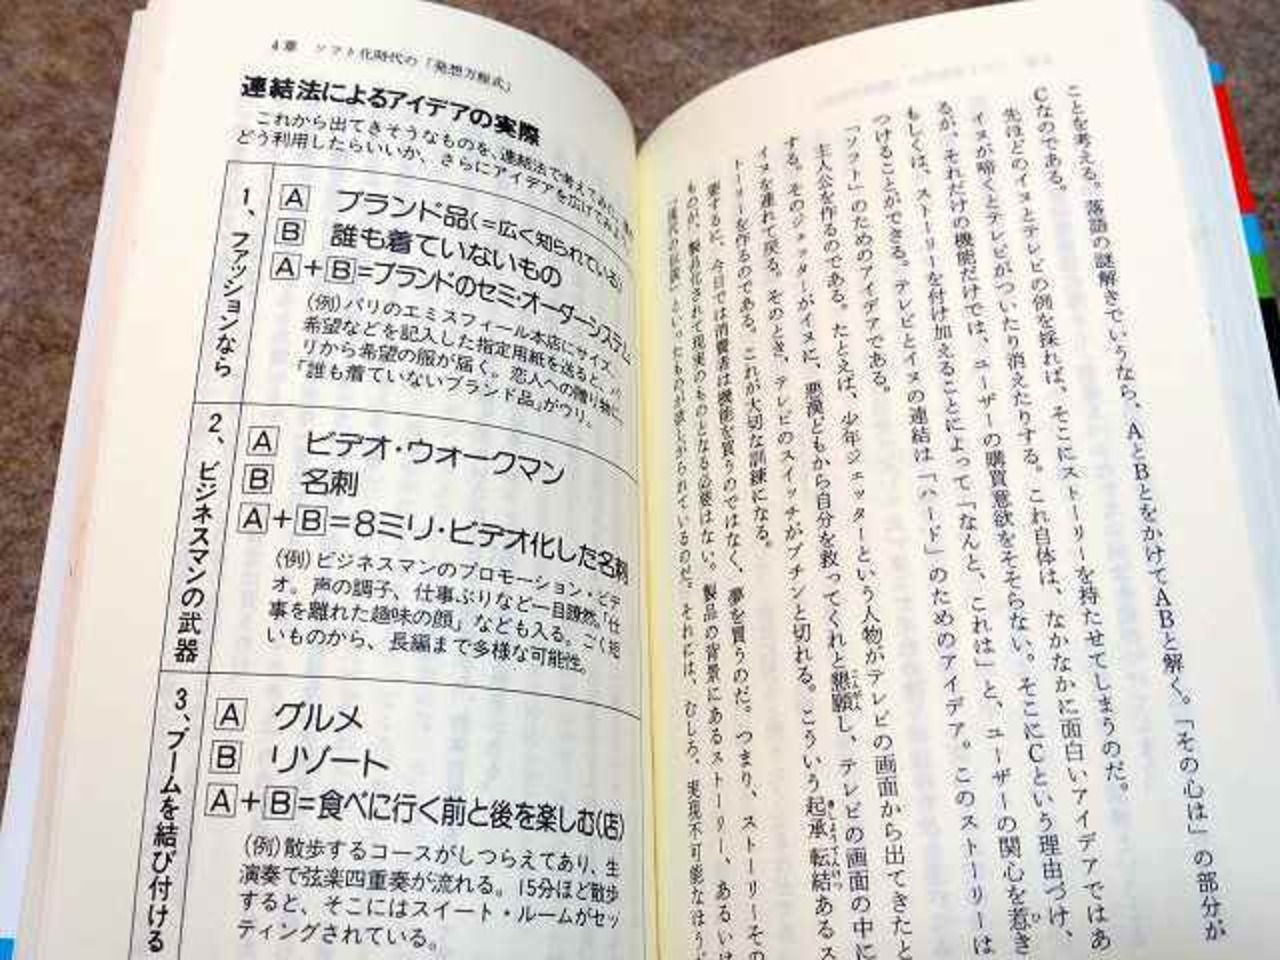 4章 ソフト化時代の「発想方程式」
連結法によるアイデアの実際
これから出てきそうなものを、連結法で考えてみた。
どう利用したらいいか、さらにアイデアを広げてみよう
1、ファッションなら
A ブランド品(=広く知られている)
B 誰も着ていないもの
A+B=ブランドのセミ・オーダーシステム
(例)パリのエミスフィール本店にサイズ、
希望などを記入した指定用紙を送ると、パ
リから希望の服が届く。恋人への贈り物に。
「誰も着ていないブランド品」がウリ。
2、ビジネスマンの武器
A ビデオ・ウォークマン
B 名刺
A+B=8ミリ・ビデオ化した名刺
(例)ビジネスマンのプロモーション・ビデ
オ。声の調子、仕事ぶりなど一目瞭然。「仕
事を離れた趣味の顔」なども入る。ごく短
いものから、長編まで多様な可能性。
3、ブームを結び付ける
A グルメ
B リゾート
A+B=食べに行く前と後を楽しむ(店)
(例)散歩するコースがしつらえてあり、生
演奏で弦楽四重奏が流れる。15分ほど散歩
すると、そこにはスイート・ルームがセッ
ティングされている。
ことを考える。落語の謎解きでいうなら、AとBとをかけてABと解く。「その心は」の部分が
Cなのである。
先ほどのイヌとテレビの例を採れば、そこにストーリーを持たせてしまうのだ。
イヌが啼くとテレビがついたり消えたりする。これ自体は、なかなかに面白いアイデアではあ
るが、それだけの機能だけでは、ユーザーの購買意欲をそそらない。そこにCという理由づけ、
もしくは、ストーリーを付け加えることによって「なんと、これは」と、ユーザーの関心を惹き
つけることができる。テレビとイヌの連結は「ハード」のためのアイデア。このストーリーは
「ソフト」のためのアイデアである。
主人公を作るのである。たとえば、少年ジェッターという人物がテレビの画面から出てきたと
する。そのジェッターがイヌに、悪漢どもから自分を救ってくれと懇願し、テレビの画面の中に
イヌを連れて戻る。そのとき、テレビのスイッチがプチンと切れる。こういう起承転結あるス
トーリーを作るのである。これが大切な訓練になる。
要するに、今日では消費者は機能を買うのではなく、夢を買うのだ。つまり、ストーリーその
ものが、製品化されて現実のものとなる必要はない。製品の背景にあるストーリー、あるいは
といったものが欲しがられているのだ。それには、むしろ、実現不可能なほう